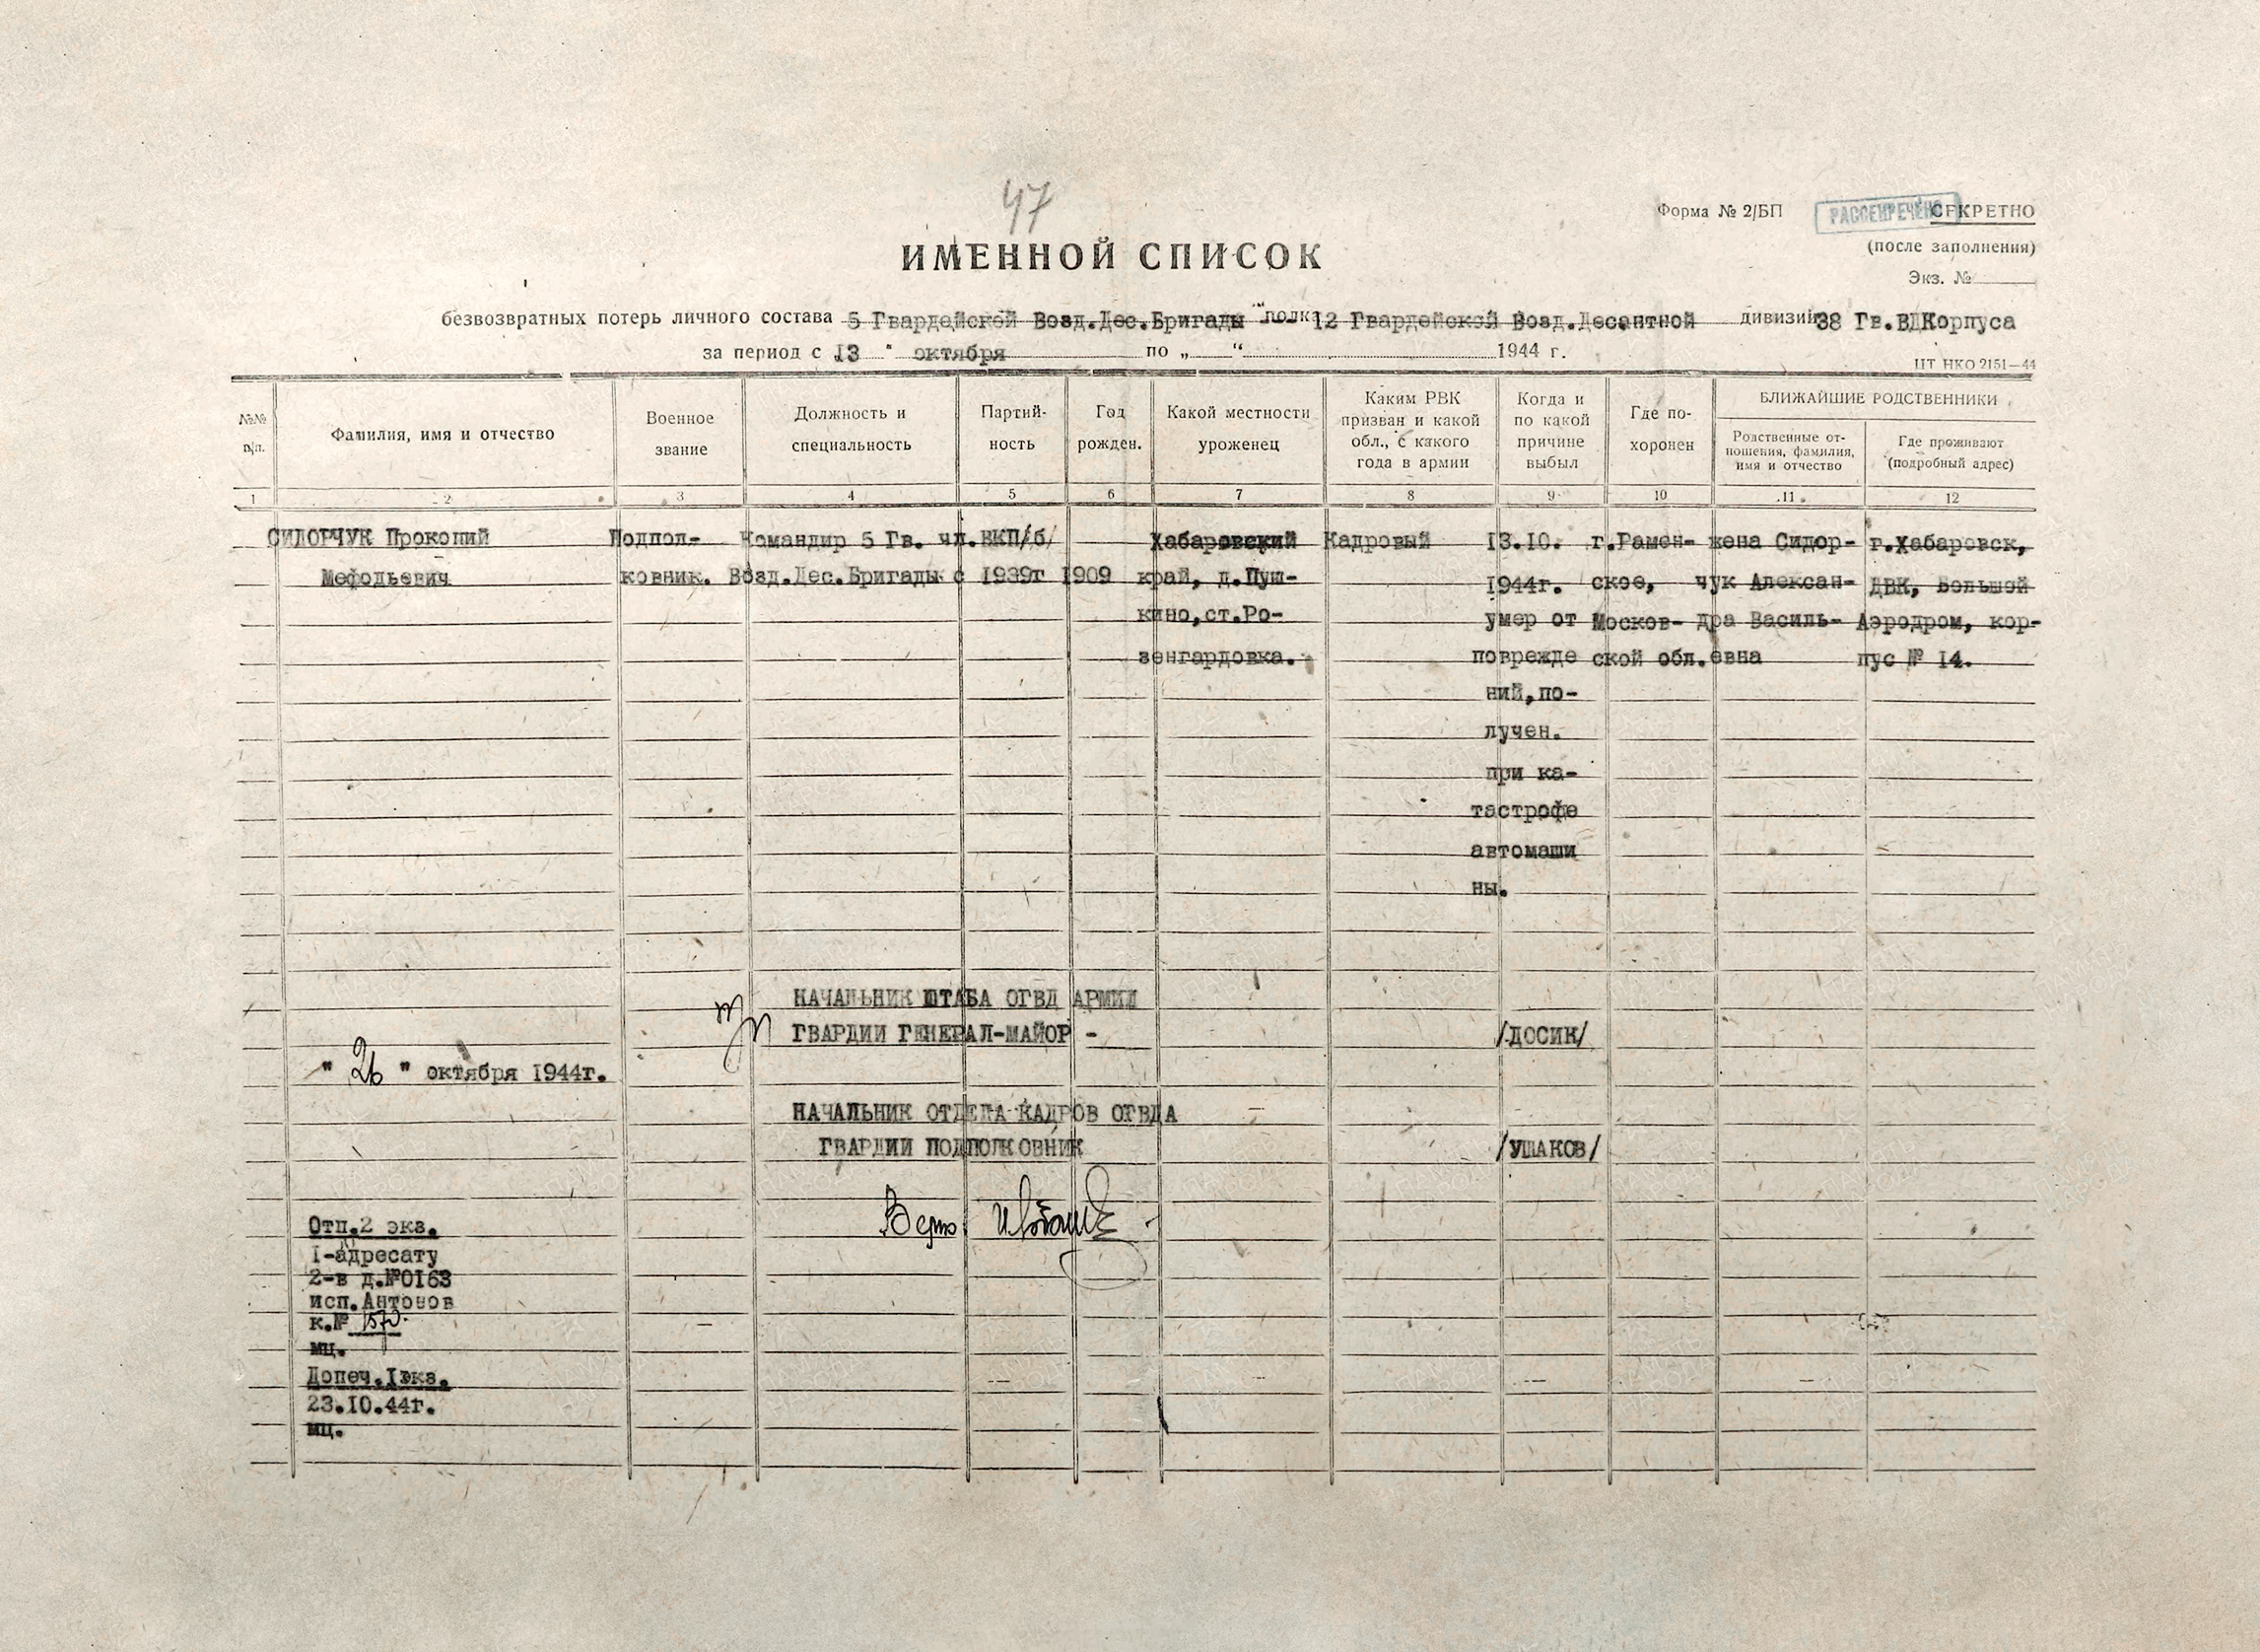 47
Форма № 2/БП
РАССЕКРЕЧЕНО
СЕКРЕТНО
(после заполнения)
Экз. №
ИМЕННОЙ СПИСОК
безвозвратных потерь личного состава 5 Гвардейской Возд.Дес.Бригады " полк 12 Гвардейской Возд.Десантной дивизии 38 Гв.ВДКорпуса
за период с 13 " октября по „ “ 1944 г.
ЦТ НКО 2151—44
№№ п/п.
Фамилия, имя и отчество
Военное звание
Должность и специальность
Партий-ность
Год рожден.
Какой местности уроженец
Каким РВК призван и какой обл., с какого года в армии
Когда и по какой причине выбыл
Где по-хоронен
БЛИЖАЙШИЕ РОДСТВЕННИКИ
Родственные от-ношения, фамилия, имя и отчество
Где проживают (подробный адрес)
1 2 3 4 5 6 7 8 9 10 11 12
СИДОРЧУК Прокопий Подпол- Командир 5 Гв. чл.ВКП/б/ Хабаровский Кадровый 13.10. г.Рамен- жена Сидор- г.Хабаровск,
Мефодьевич ковник. Возд.Дес.Бригады с 1939г 1909 край, д.Пуш- 1944г. ское, чук Алексан- ДВК, Большой
кино,ст.Ро- умер от Москов- дра Василь- Аэродром, кор-
зенгардовка. поврежде ской обл. евна пус № 14.
ний,по-
лучен.
при ка-
тастрофе
автомаши
ны.
НАЧАЛЬНИК ШТАБА ОГВД АРМИИ
ГВАРДИИ ГЕНЕРАЛ-МАЙОР - /ДОСИК/
" 26 " октября 1944г.
НАЧАЛЬНИК ОТДЕЛА КАДРОВ ОГВДА
ГВАРДИИ ПОДПОЛКОВНИК /УШАКОВ/
Верно:
Отп.2 экз.
1-адресату
2-в д.№0163
исп.Антонов
к.№
мц.
Допеч.1экз.
23.10.44г.
мц.